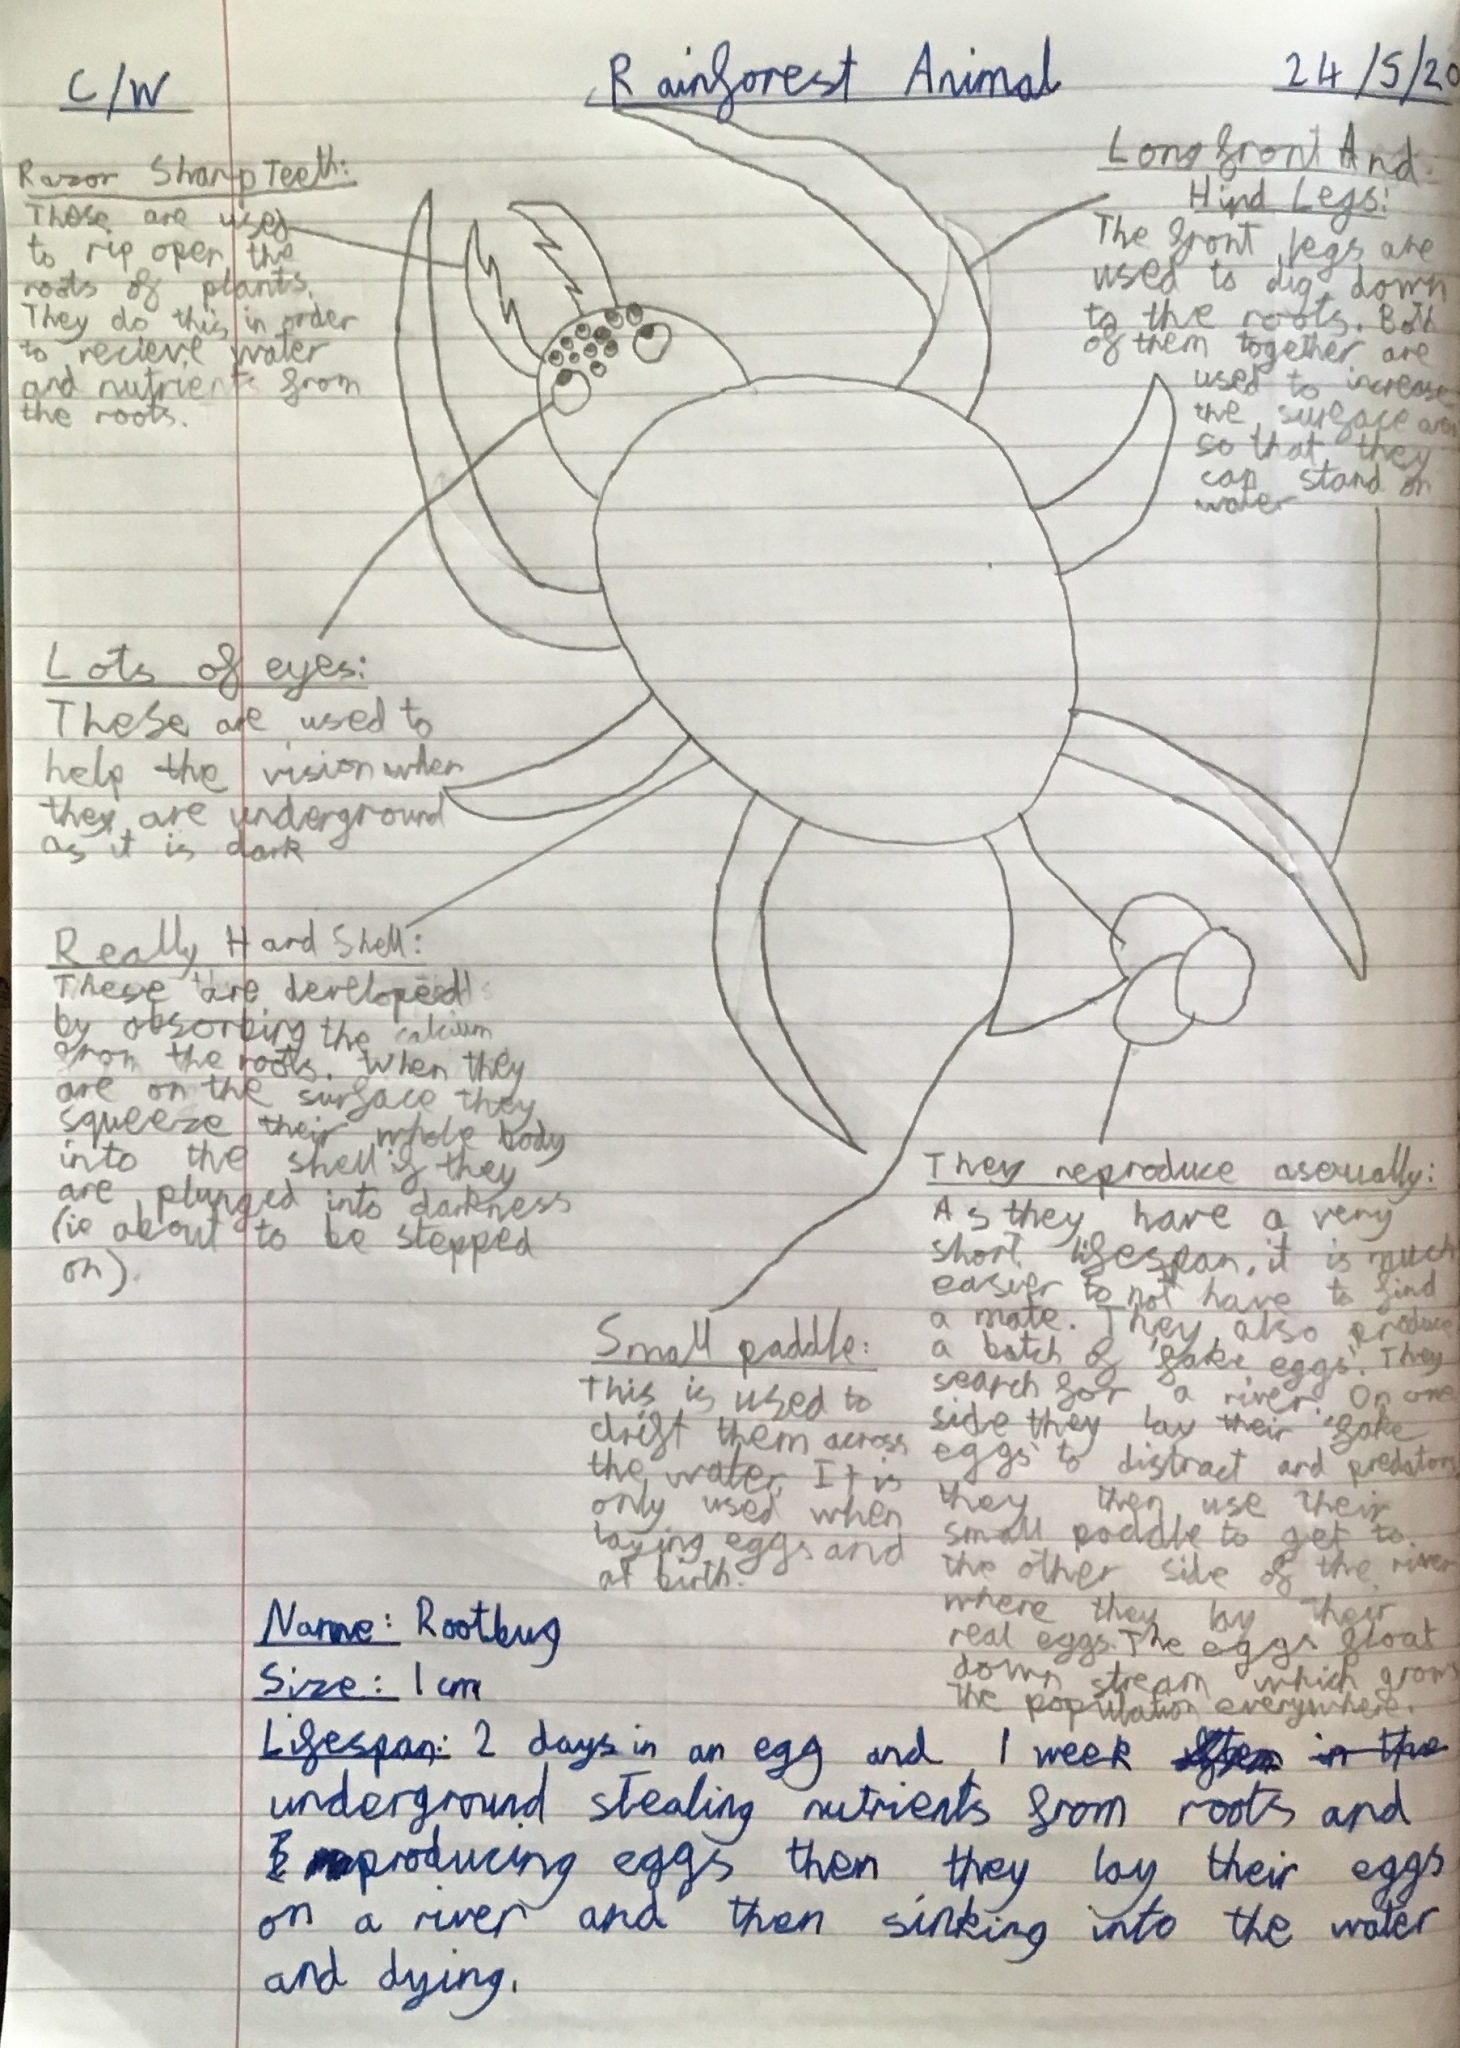 C/W
Rainforest Animal
24/5/20
Razor Sharp Teeth:
These are used
to rip open the
roots of plants.
They do this in order
to recieve water
and nutrients from
the roots.
Long front And
Hind Legs:
The front legs are
used to dig down
to the roots. Both
of them together are
used to increase
the surface area
so that they
can stand on
water
Lots of eyes:
These are used to
help the vision when
they are underground
as it is dark
Really Hard Shell:
These are developed
by absorbing the calcium
from the roots. When they
are on the surface they
squeeze their whole body
into the shell if they
are plunged into darkness
(ie about to be stepped
on).
Small paddle:
This is used to
drift them across
the water. It is
only used when
laying eggs and
at birth.
They reproduce asexually:
As they have a very
short lifespan, it is much
easier to not have to find
a mate. They also produce
a batch of 'fake eggs'. They
search for a river. On one
side they lay their 'fake
eggs' to distract and predators
they then use their
small paddle to get to
the other side of the river
where they lay their
real eggs. The eggs float
down stream which grows
the population everywhere.
Name: Rootbug
Size: 1cm
Lifespan: 2 days in an egg and 1 week in the
underground stealing nutrients from roots and
producing eggs then they lay their eggs
on a river and then sinking into the water
and dying.